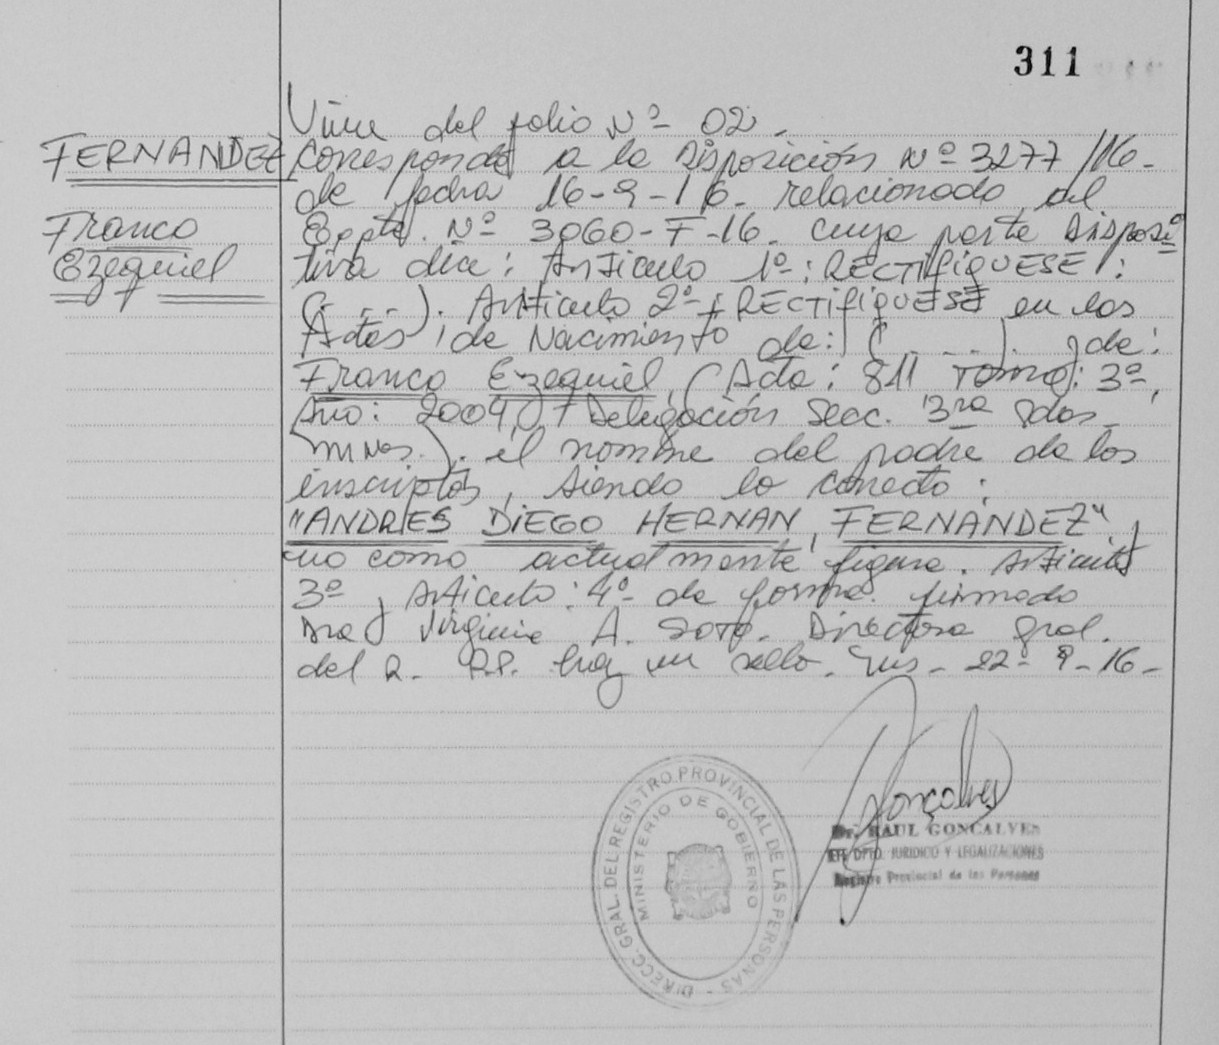 311
Viene del folio Nº 02.
FERNANDEZ
Franco
Ezequiel
corresponde a la Disposición Nº 3277/16-
de fecha 16-9-16. relacionado al
Expte. Nº 3060-F-16. cuya parte Disposi
tiva dice: Articulo 1º: RECTIFIQUESE:
(...). Articulo 2º: RECTIFIQUESE en las
Actas de Nacimiento de: (.....). de:
Franco Ezequiel, (Acta: 811 Tomo: 3º,
Año: 2004, Delegación Secc. 3ra Pdas
Mnes.). el nombre del padre de los
inscriptos, siendo lo correcto:
"ANDRES DIEGO HERNAN FERNANDEZ",
no como actualmente figura. Articulo
3º y Articulo: 4º de forma. firmado
Dra Virginia A. SOTO. Directora Gral.
del R. P.P. hay un sello. Pdas- 22-9-16-
Gonçalves
Dr. RAUL GONCALVES
JEFE DPTO. JURIDICO Y LEGALIZACIONES
Registro Provincial de las Personas
DIRECC. GRAL. DEL REGISTRO PROVINCIAL DE LAS PERSONAS -
MINISTERIO DE GOBIERNO